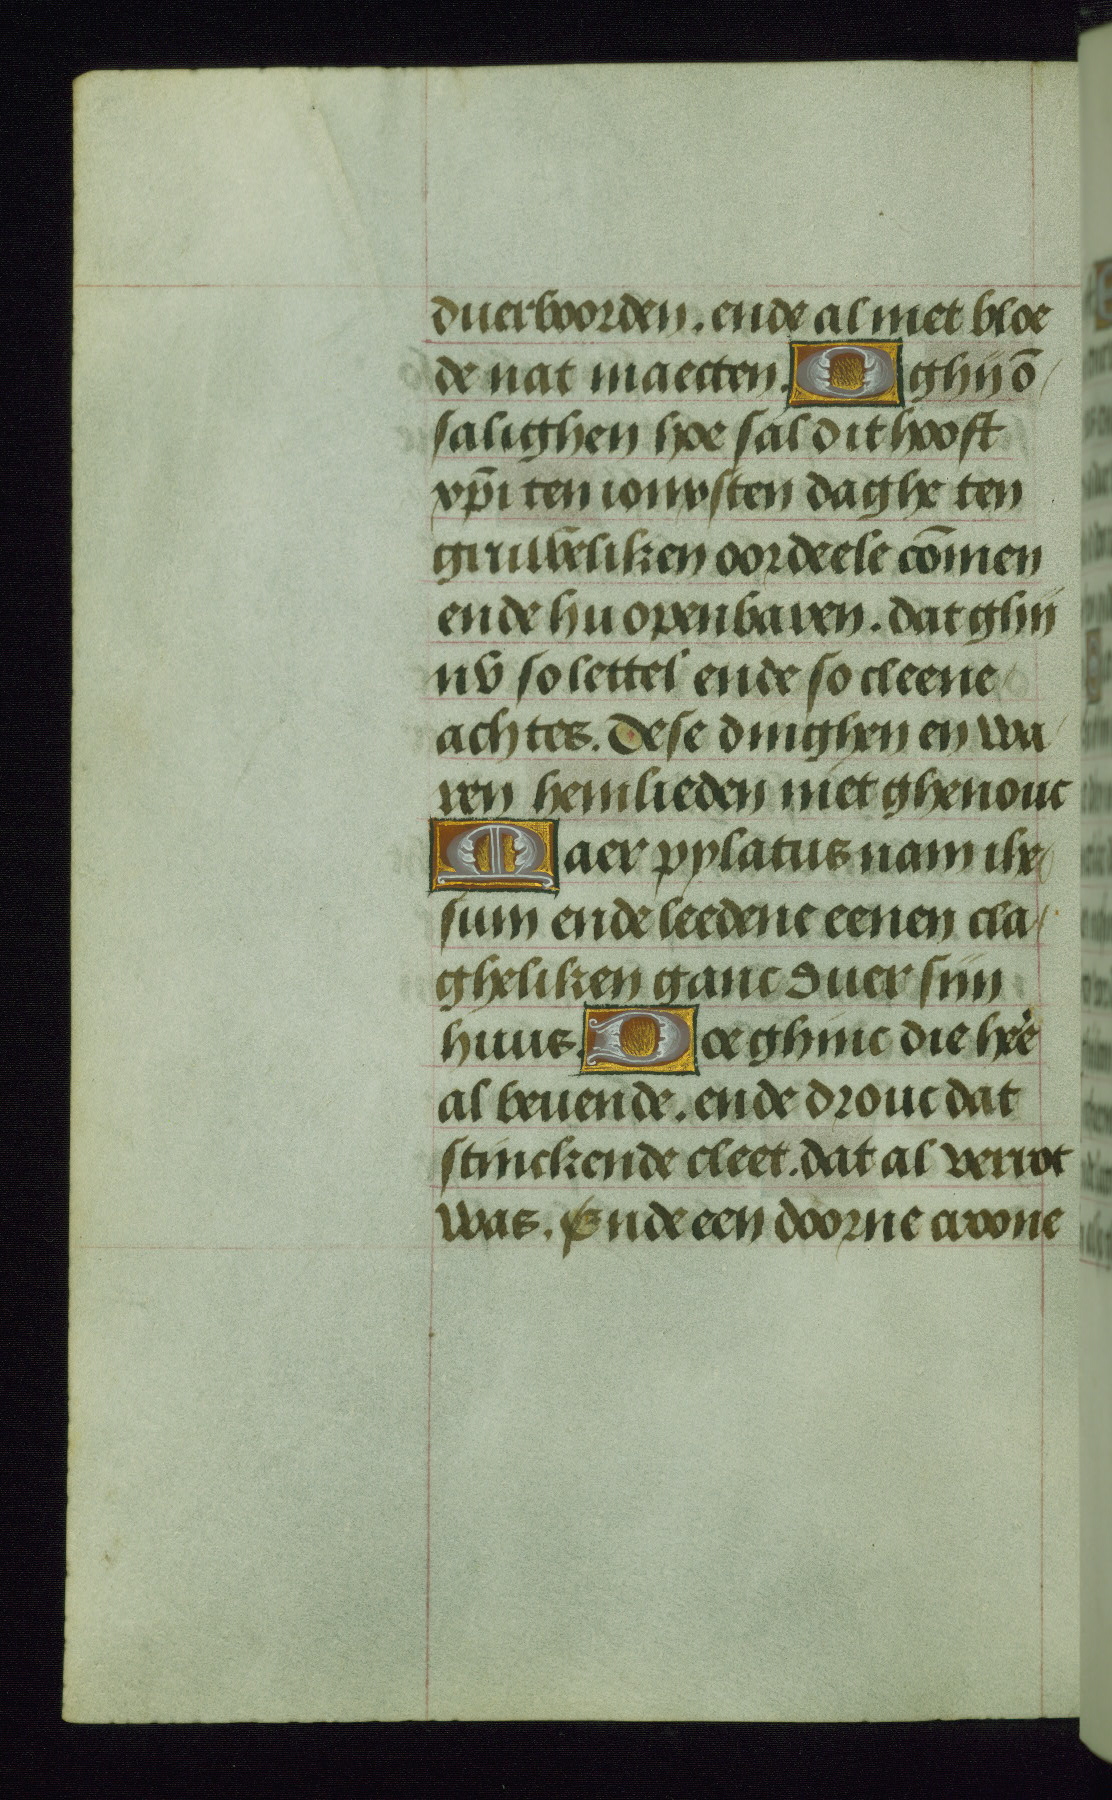 duerboorden. ende al met bloe
de nat maecten. O ghij õ/
salighen hoe sal dit hooft
vp̄i ten ionvsten daghe ten
gruuwēliken oordeele cōmen
ende hu openbaren. dat ghij
nv̄ so lettel ende so cleene
achtes. Dese dinghen en wa/
ren hemlieden niet ghenouc
Maer pylatus nam ihe/
sum ende leedene eenen cla/
gheliken ganc duer sijn
huus. Doe ghinc die heẽ
al beuende. ende drouc dat
stinckende cleet. dat al verrot
was. Ende een doorne croone